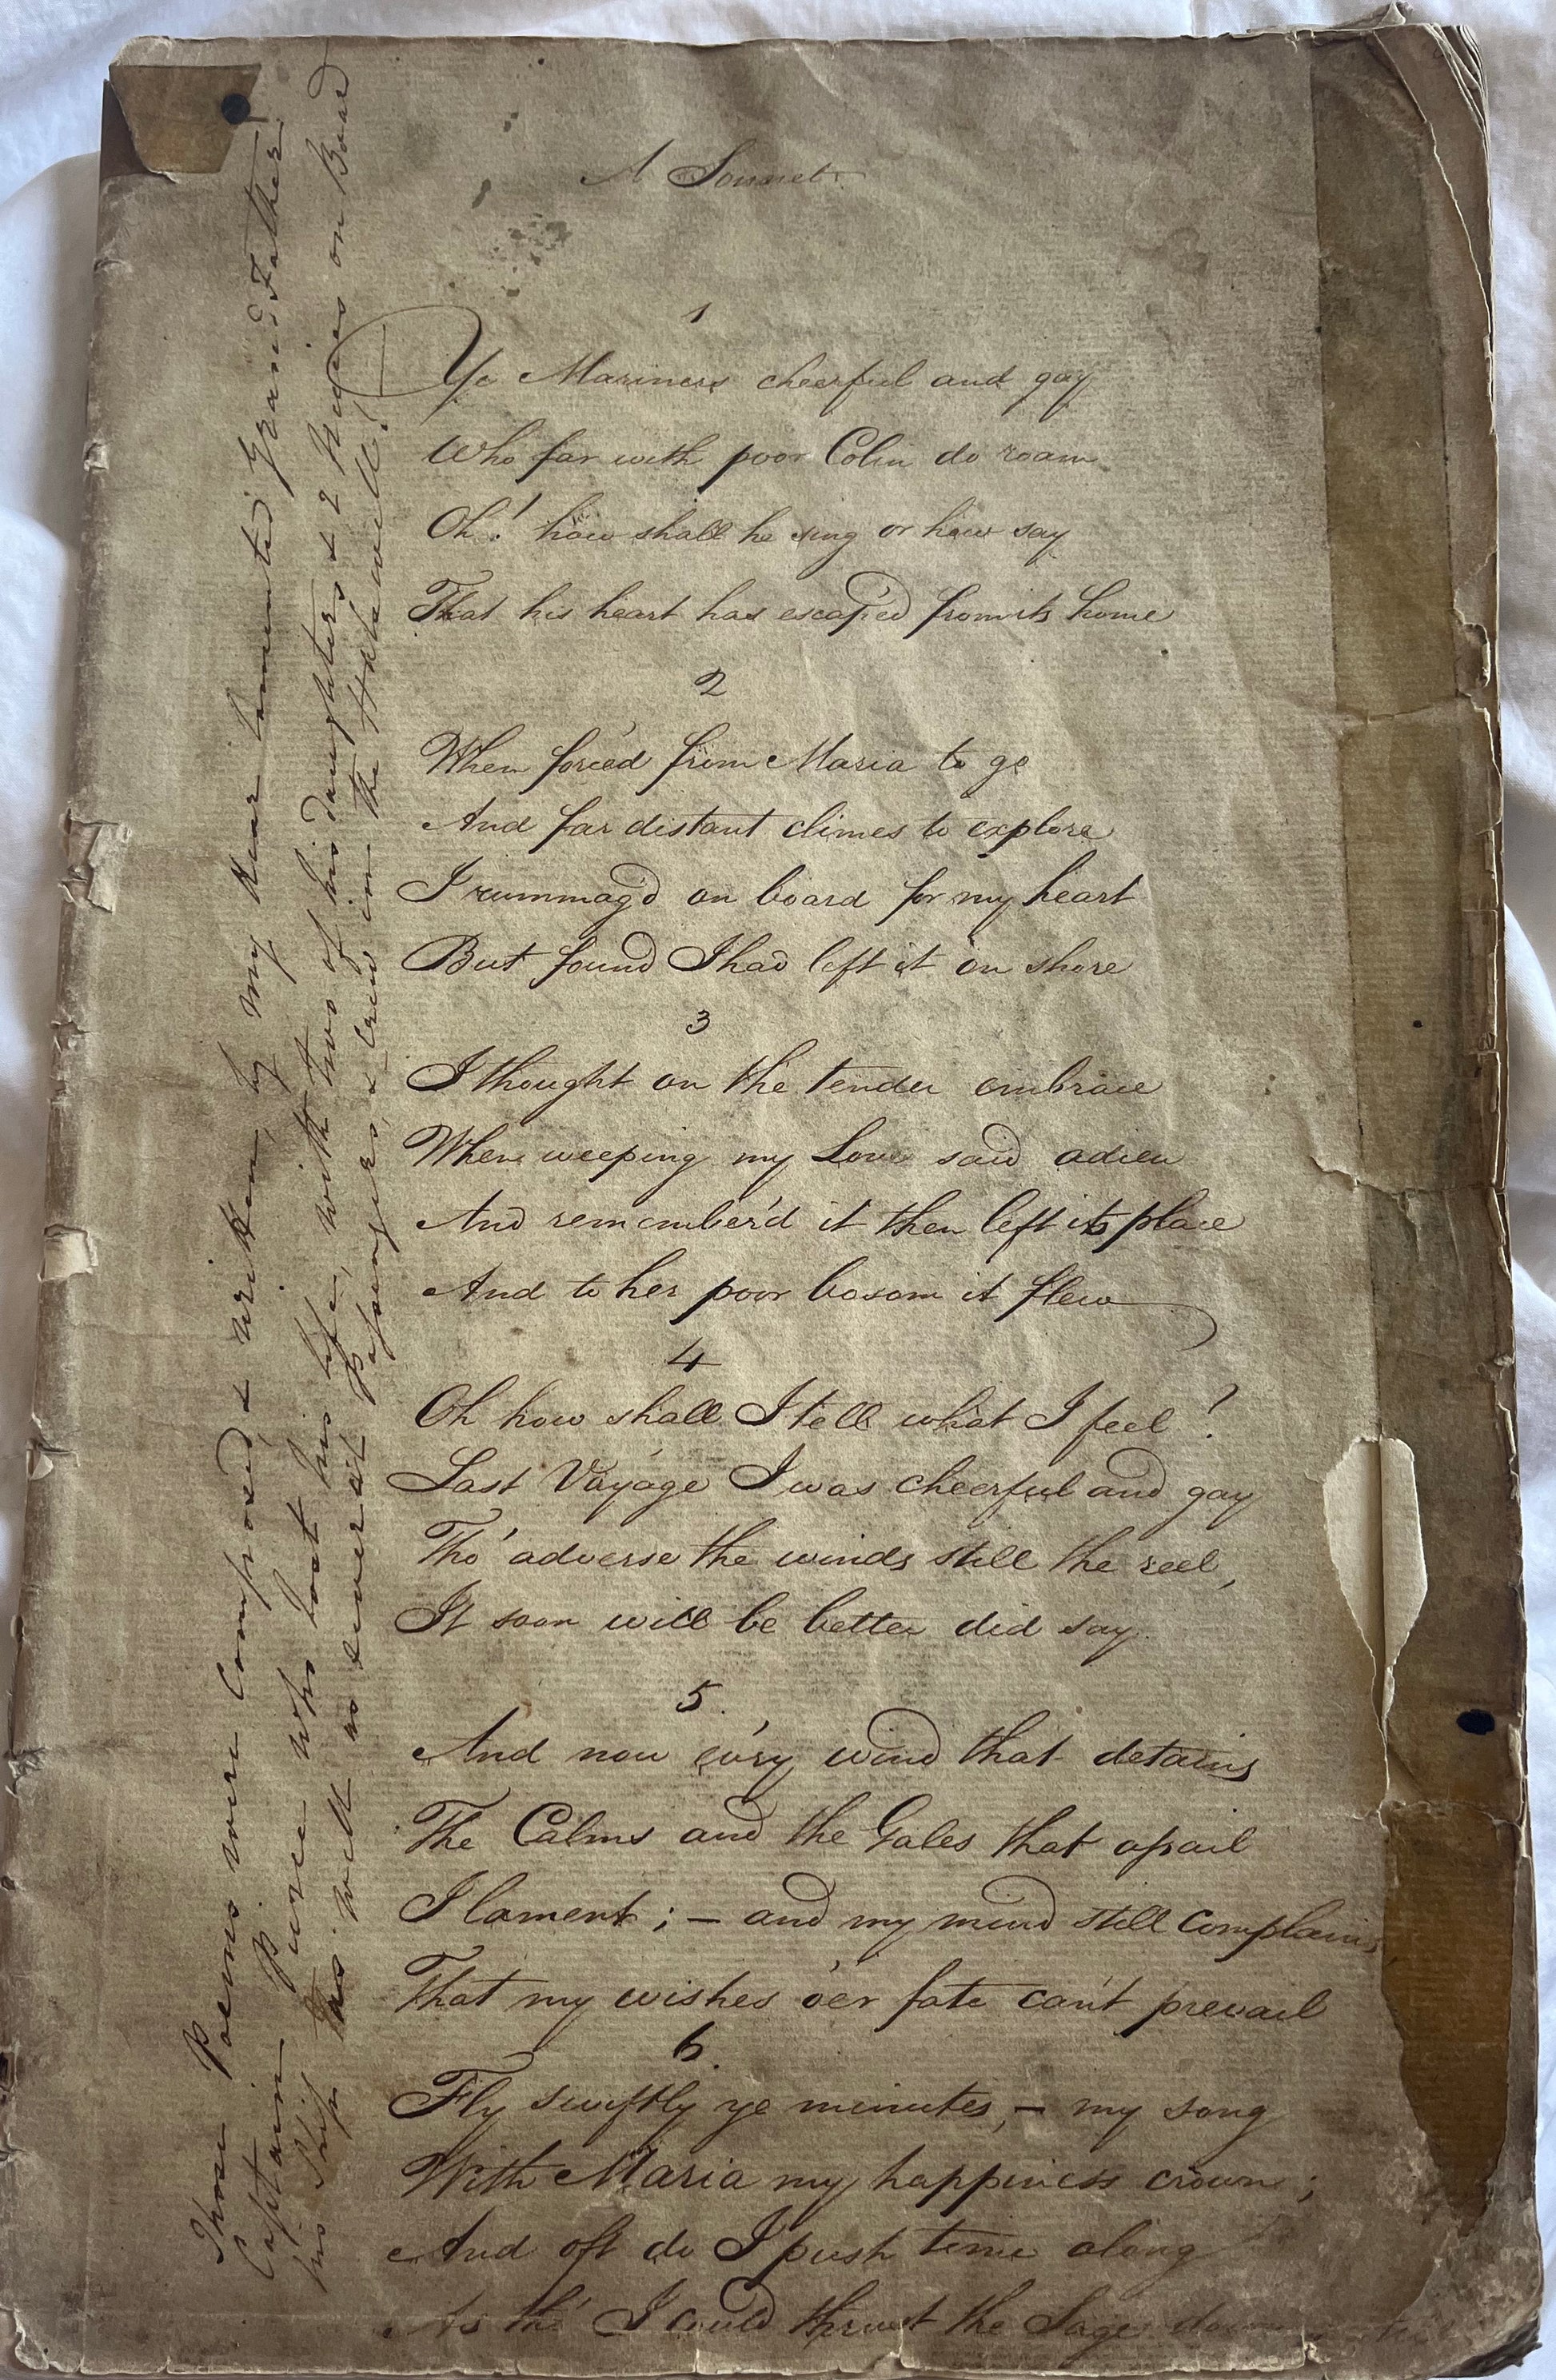 A Sonnet
1
Ye Mariners cheerful and gay
Who far with poor Colin do roam
Oh! how shall he sing or how say
That his heart has escap'ed from its home
2
When forc'ed from Maria to go
And far distant climes to explore
I rummag'd on board for my heart
But found I had left it on shore
3
I thought on the tender embrace
When weeping my Love said adieu
And remember'd it then left its place
And to her poor bosom it flew
4
Oh how shall I tell what I feel?
Last Voyage I was cheerful and gay
Tho' adverse the winds still the reel,
It soon will be better did say
5.
And now ev'ry wind that detains
The Calms and the Gales that assail
I lament; – and my mind still complains
That my wishes o'er fate can't prevail
6.
Fly swiftly ye minutes, – my song
With Maria my happiness crown;
And oft do I push time along
As tho' I could thrust the Sage down
These Poems were Composed, & written, by my dear lamented Grand Father
Captain Pierce who lost his life, with two of his daughters & 2 Nieces on Board
his Ship this well as several Passengers, & Crew in the Halsewell!